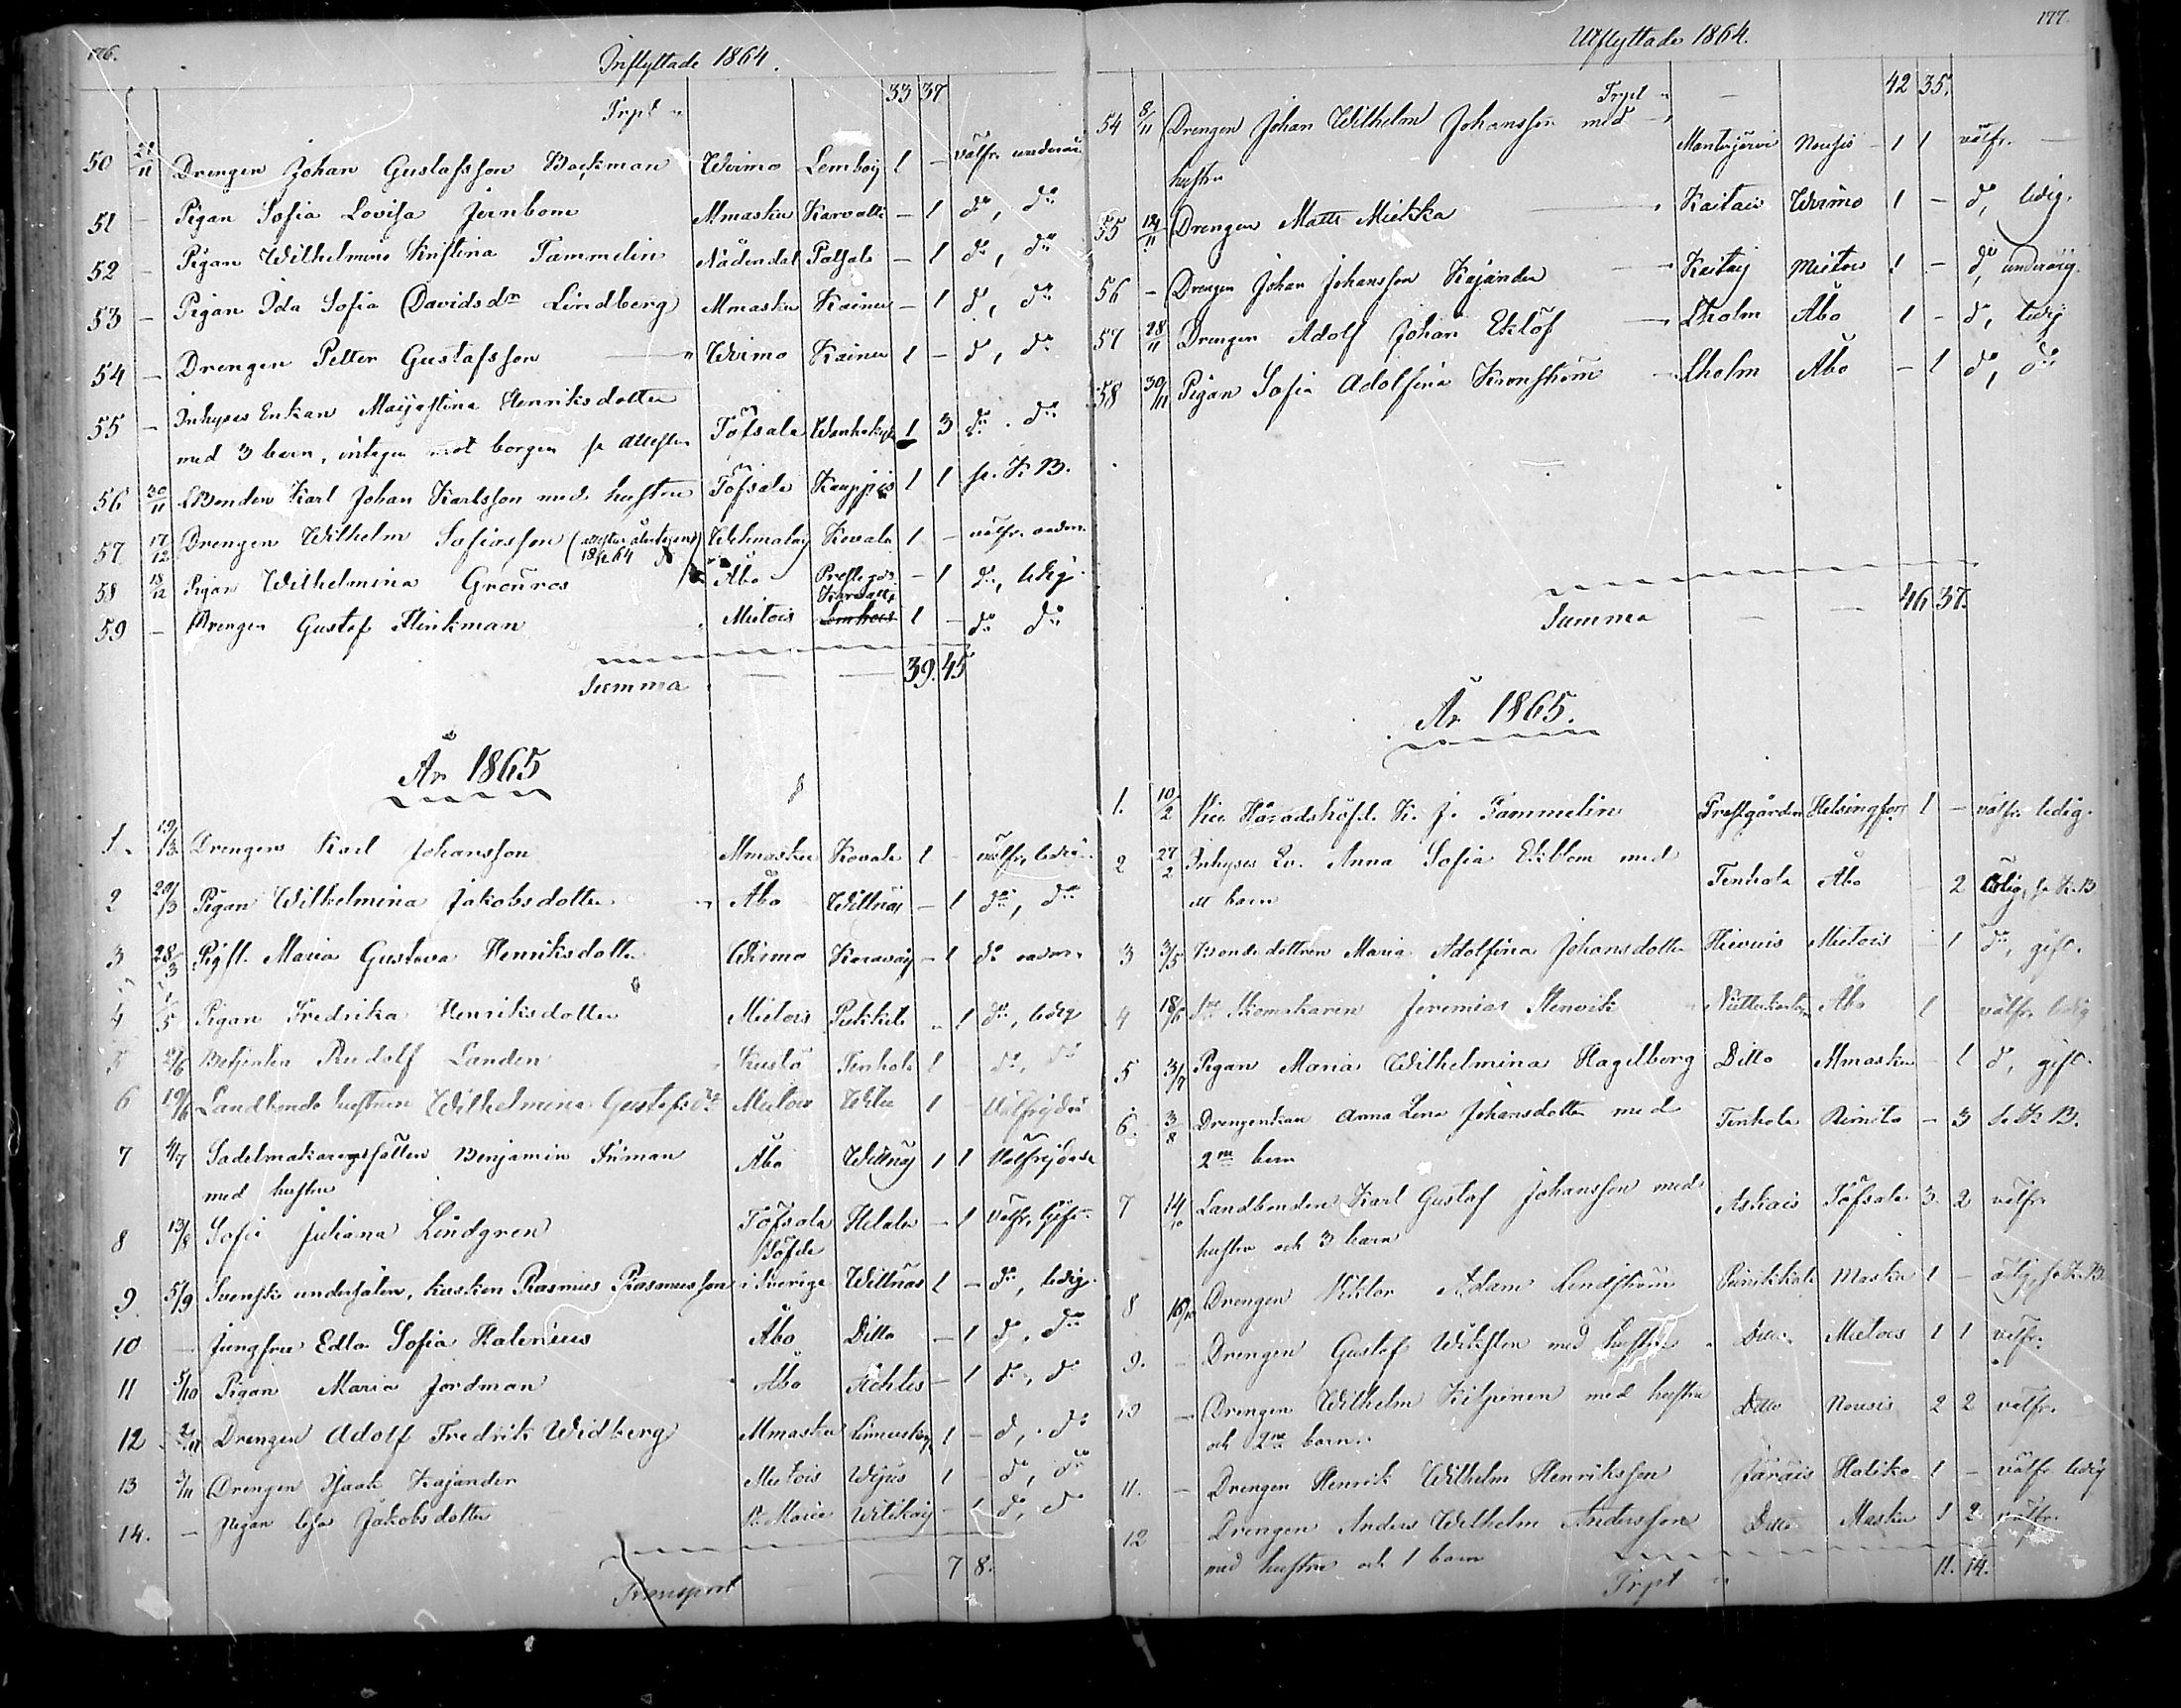 176.
Inflyttade 1864.
Trpt " 33 37
50 21/11 Drengen Johan Gustafsson Backman Wirmo Lemboij 1 – välfr. underår.
51 – Pigan Sofia Lovisa Jernbom Mmasku Karvatti – 1 do, do
52 – Pigan Wilhelmina Kristina Tammelin Nådendal – 1 do, do
53 – Pigan Ida Sofia Davidsdr Lindberg Mmasku Kainu – 1 do, do
54 – Drengen Petter Gustafsson " Wirmo Kainu 1 – do, do
55 – Inhyses Enkan Maijastina Henriksdotter
med 3 barn, intagen mot borgen se attesten Töfsala Wanhakylä 1 3 do. do
56 30/11 Bonden Karl Johan Karlsson med hustru Töfsala Kauppis 1 1 se K.B.
57 17/12 Drengen Wilhelm Sofiasson (attesten återtagen 18 64) Wehmalay Kovala 1 – välfr.
58 18/12 Pigan Wilhelmina Grönros Åbo Prestgrd. – 1 do, ledig.
59 – Drengen Gustaf Flinkman Mietois Karvatti Lemhois 1 – do do
Summa. — — 39. 45
År 1865
1. 19/3 Drengen Karl Johansson Mmasku Kovala 1 – välfr. ledig.
2 20/3 Pigan Wilhelmina Jakobsdotter " Åbo Willnäs – 1 do, do
3 28/3 Maria Gustava Henriksdotter Wirmo – 1 do
4 1/5 Pigan Fredrika Henriksdotter Mietois – 1 do, ledig
5 2/6 Betjenten Rudolf Landen Kustö Tenhola 1 do, do
6 19/6 Landbonde hustrun Wilhelmina Gustafsdr Mietois 1 Välfrejdad
7 4/7 Sadelmakaregesällen Benjamin Friman
med hustru Åbo Willnäs 1 1 Välfrejdade
8 13/8 Sofia Juliana Lindgren Töfsala – 1 välfr. Gift.
9. 5/9 Svenske undersåten, kusken Rasmus Rasmusson i Sverige Willnäs 1 – do, ledig.
10 – Jungfru Edla Sofia Halenius Åbo Ditto – 1 do, do
11 5/10 Pigan Maria Jordman Åbo Ahtis – 1 do, do
12. Drengen Adolf Fredrik Widberg Mmasku 1 – do, do
13 Drengen Isaak Kajander Mietois 1 – do, do
14. – Pigan Lisa Jakobsdotter St. Marie – 1 do, do
Transport — — 7 8.
177.
Utflyttade 1864.
Trpt " – 42 35.
54 8/11 Drengen Johan Wilhelm Johansson med
hustru Mantujärvi Nousis 1 1 välfr. –
55 12/11 Drengen Matts Mickka Kaitais Wirmo 1 – do, ledig.
56 – Drengen Johan Johansson Kajander Kaitaij Mietois 1 – do, underårig.
57 28/11 Drengen Adolf Johan Eklöf Lholm Åbo 1 – do, ledig
58 30/11 Pigan Sofia Adolfina Kronström Lholm Åbo – 1 do, do
Summa — — 46 37.
År 1865.
1. 10/2 Vice Häradshöfd. K. J. Tammelin Prestgården Helsingfors 1 – välfr. ledig.
2 27/2 Inhyses Anna Sofia Ekblom med
ett barn Tenhola Åbo 2 se K.B.
3 3/5 Bonde dottren Maria Adolfina Johansdotter Hiwais Mietois 1 do, gift.
4 18/6 Skomakaren Jeremias Stenvik Åbo 1 välfr. ledig
5 3/7 Pigan Maria Wilhelmina Hagelberg Ditto Mmasku 1 do, gift.
6. 3/8 Drengenkan Anna Lena Johansdotter med
2ne barn Tenhola Rimito – 3 se K.B.
7 14/10 Landbonden Karl Gustaf Johansson med
hustru och 3 barn Askais Töfsala 3. 2 välfr.
8 16/10 Drengen Viktor Adam Lindström Masku 1 – se K.B.
9. – Drengen Gustaf Wikstén med hustru Ditto Mietois 1 1 välfr.
10 – Drengen Wilhelm Kilpinen med hustru
och 2ne barn. Ditto Nousis 2 2 välfr.
11. – Drengen Henrik Wilhelm Henriksson Järäis Haliko 1 – välfr. ledig
12 Drengen Anders Wilhelm Andersson
med hustru och 1 barn Ditto Masku 1 2 välfr.
Trpt " 11. 14.